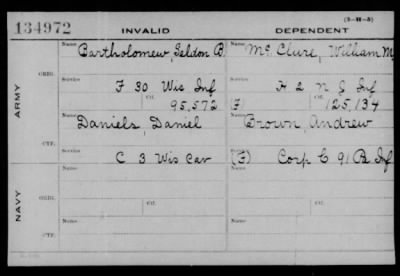 134972 INVALID DEPENDENT (3-H-5)
Name Bartholomew, Seldon B. Name McClure, William M
ARMY
ORIG.
Service F 30 Wis Inf Service H 2 N G Inf
Ctf. 95,572 (F) Ctf. 125,134
Name Daniels, Daniel Name Brown, Andrew
CTF.
Service C 3 Wis Cav Service (F) Corp C 91 Inf
NAVY
ORIG.
Name Ctf. Name Ctf.
CTF.
Name Name